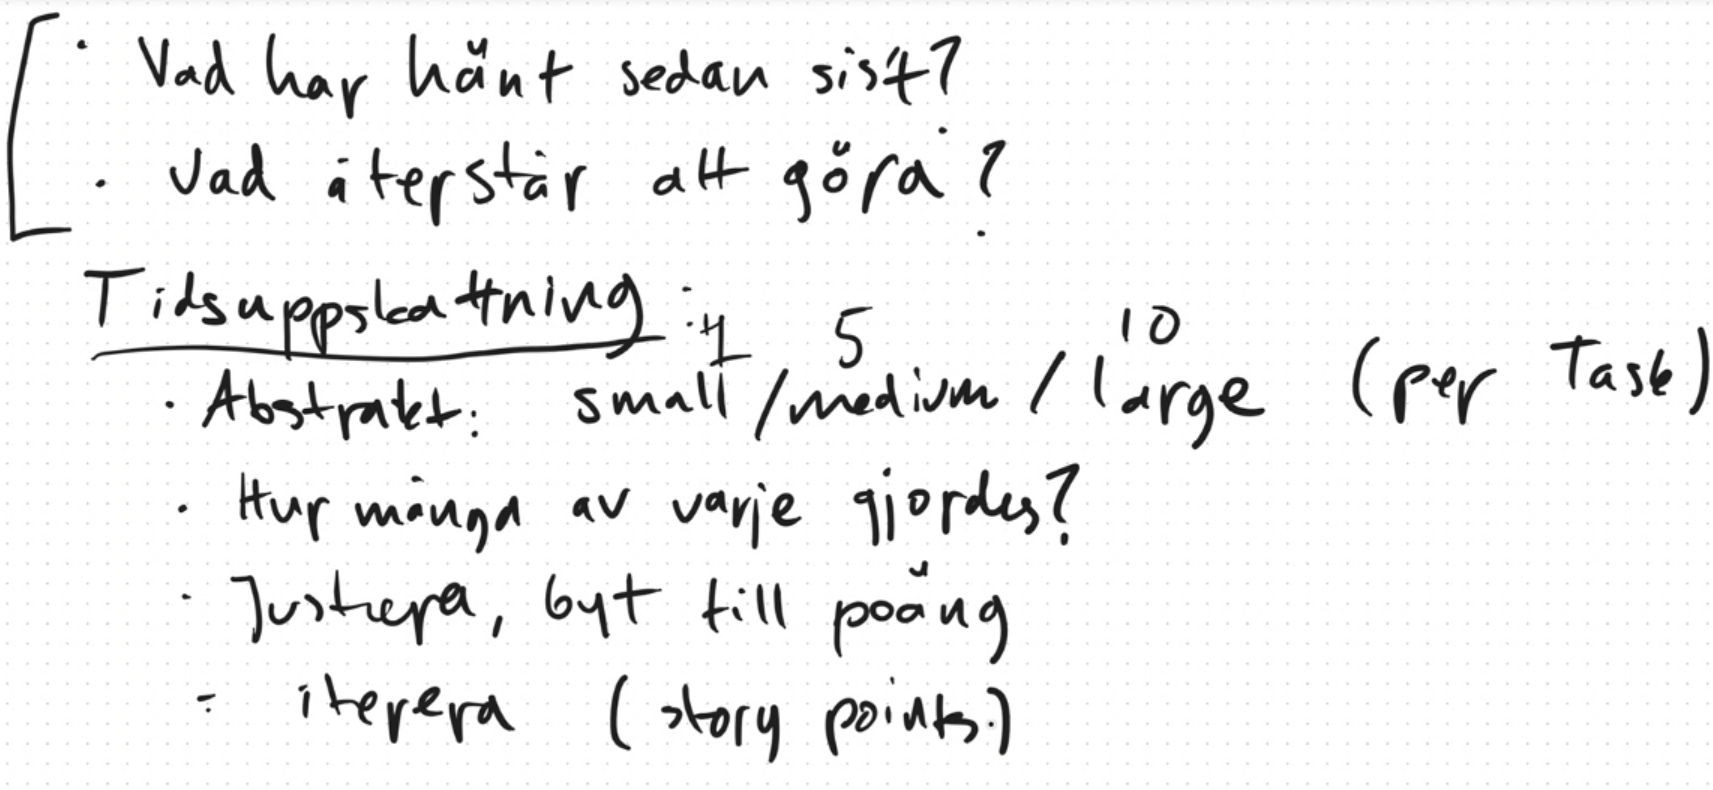 · Vad har hänt sedan sist?
· Vad återstår att göra?
Tidsuppskattning:
1 5 10
· Abstrakt: small / medium / large (per Task)
· Hur många av varje gjordes?
· Justera, byt till poäng
- iterera (story points)